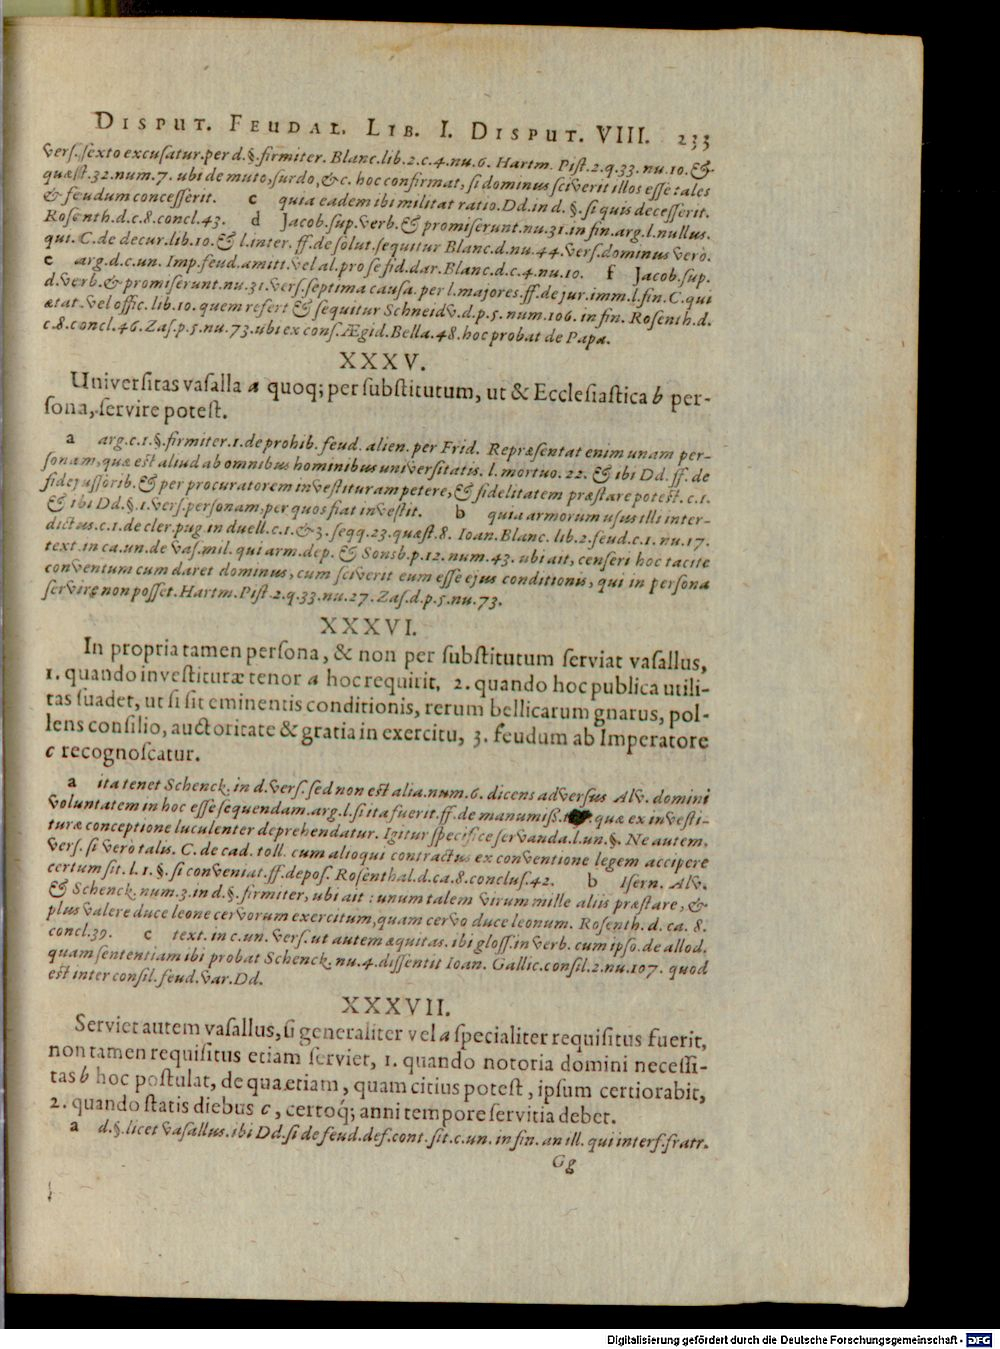 DISPUT. FEUDAL. LIB. I. DISPUT. VIII. 233
vers. sexto excusatur. per d. §. firmiter. Blanc. lib. 2. c. 4. nu. 6. Hartm. Pist. 2. q. 33. nu. 10. &
quæst. 32. num. 7. ubi de muto, surdo, &c. hoc confirmat, si dominus sciverit illos esse tales
& feudum concesserit. c quia eadem ibi militat ratio. Dd. in d. §. si quis decesserit.
Rosenth. d. c. 8. concl. 43. d Jacob. sup. verb. & promiserunt. nu. 31. in fin. arg. l. nullus.
qui. C. de decur. lib. 10. & l. inter. ff. de solut. sequitur Blanc. d. nu. 44. vers. dominus verò.
e arg. d. c. un. Imp. feud. amitt. vel al. pro se fid. dar. Blanc. d. c. 4. nu. 10. f Jacob. sup.
d. verb. & promiserunt. nu. 31. vers. septima causa. per l. majores. ff. de jur. imm. l. fin. C. qui
ætat. vel offic. lib. 10. quem refert & sequitur Schneidv. d. p. 5. num. 106. in fin. Rosenth. d.
c. 8. concl. 46. Zas. p. 5. nu. 73. ubi ex cons. Ægid. Bella. 48. hoc probat de Papa.
XXXV.
Universitas vasalla a quoq; per substitutum, ut & Ecclesiastica b per-
sona, servire potest.
a arg. c. 1. §. firmiter. 1. de prohib. feud. alien. per Frid. Repræsentat enim unam per-
sonam, quæ est aliud ab omnibus hominibus universitatis. l. mortuo. 22. & ibi Dd. ff. de
fidejussorib. & per procuratorem investituram petere, & fidelitatem præstare potest. c. 1.
& ibi Dd. §. 1. vers. personam. per quos fiat investit. b quia armorum usus illi inter-
dictus. c. 1. de cler. pug. in duell. c. 1. & 3. seqq. 23. quæst. 8. Ioan. Blanc. lib. 2. feud. c. 1. nu. 17.
text. in ca. un. de vas. mil. qui arm. dep. & Sonsb. p. 12. num. 43. ubi ait, censeri hoc tacite
conventum cum daret dominus, cum sciverit eum esse ejus conditionis, qui in persona
servire non posset. Hartm. Pist. 2. q. 33. nu. 27. Zas. d. p. 5. nu. 73.
XXXVI.
In propria tamen persona, & non per substitutum serviat vasallus,
1. quando investituræ tenor a hoc requirit, 2. quando hoc publica utili-
tas suadet, ut si sit eminentis conditionis, rerum bellicarum gnarus, pol-
lens consilio, auctoritate & gratia in exercitu, 3. feudum ab Imperatore
c recognoscatur.
a ita tenet Schenck. in d. vers. sed non est alia. num. 6. dicens adversus Alv. domini
voluntatem in hoc esse sequendam. arg. l. si ita fuerit. ff. de manumiss. quæ ex investi-
turæ conceptione luculenter deprehendatur. Igitur specifice servanda. l. un. §. Ne autem.
vers. si verò talis. C. de cad. toll. cum alioqui contractus ex conventione legem accipere
certum sit. l. 1. §. si conveniat. ff. depos. Rosenthal. d. ca. 8. conclus. 42. b Isern. Alv.
& Schenck. num. 3. in d. §. firmiter, ubi ait : unum talem virum mille aliis præstare, &
plus valere duce leone cervorum exercitum, quam cervo duce leonum. Rosenth. d. ca. 8.
concl. 39. c text. in c. un. vers. ut autem æquitas. ibi gloss. in verb. cum ipso. de allod.
quam sententiam ibi probat Schenck. nu. 4. dissentit Ioan. Gallic. consil. 2. nu. 107. quod
est inter consil. feud. var. Dd.
XXXVII.
Serviet autem vasallus, si generaliter vel a specialiter requisitus fuerit,
non tamen requisitus etiam serviet, 1. quando notoria domini necessi-
tas b hoc postulat, de qua etiam, quam citius potest, ipsum certiorabit,
2. quando statis diebus c, certoq́; anni tempore servitia debet.
a d. §. licet vasallus. ibi Dd. si de feud. def. cont. sit. c. un. in fin. an ill. qui interf. fratr.
Gg
Digitalisierung gefördert durch die Deutsche Forschungsgemeinschaft - DFG